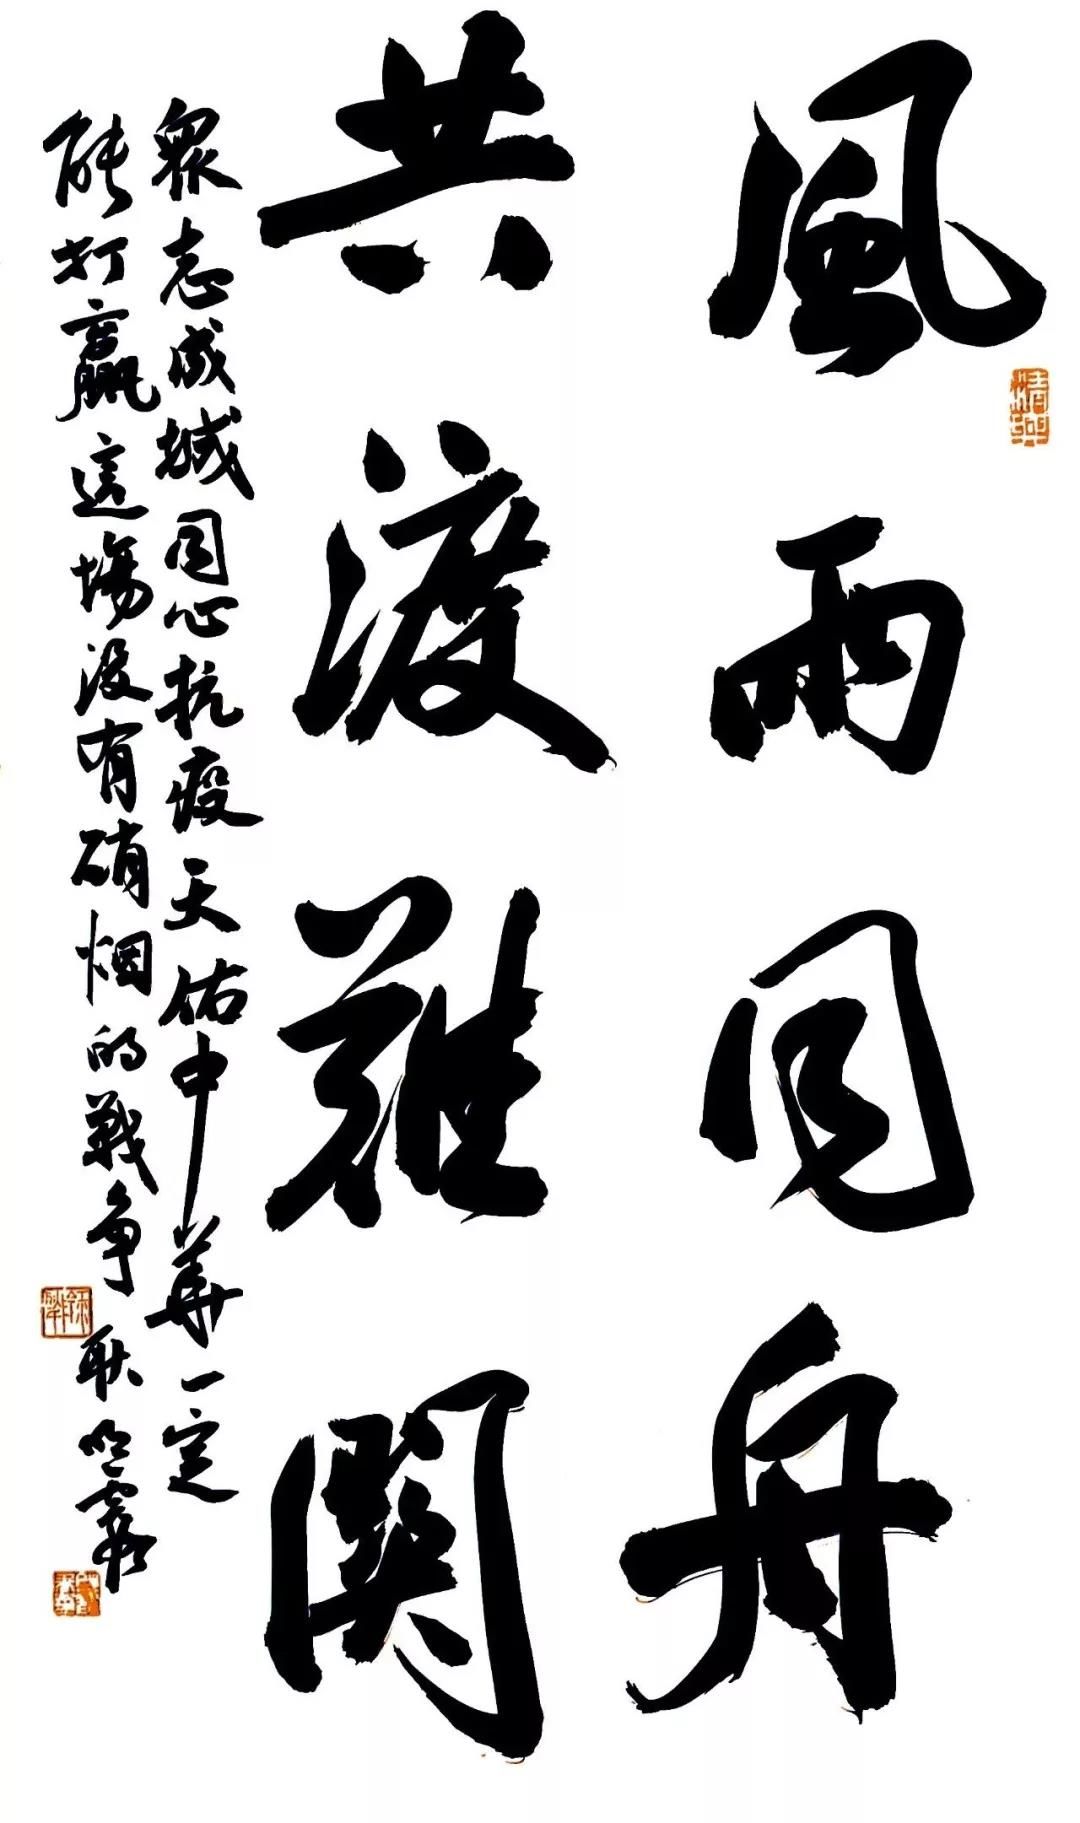 風雨同舟
共渡難關
眾志成城同心抗疫天佑中華一定
能打贏這場没有硝烟的戰争
耿